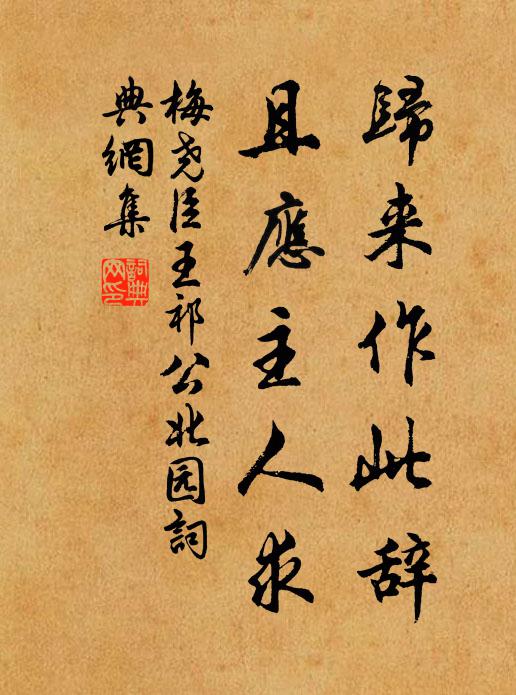 歸来作此辞
且應主人求
梅尧臣王祁公北园詞
典網集
詞典網印